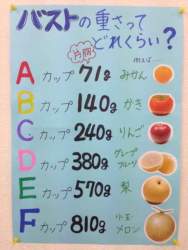 バストの重さって
どれくらい?
片胸
例えば…
A カップ 71g みかん
B カップ 140g かき
C カップ 240g りんご
D カップ 380g グレープフルーツ
E カップ 570g 梨
F カップ 810g 小玉メロン